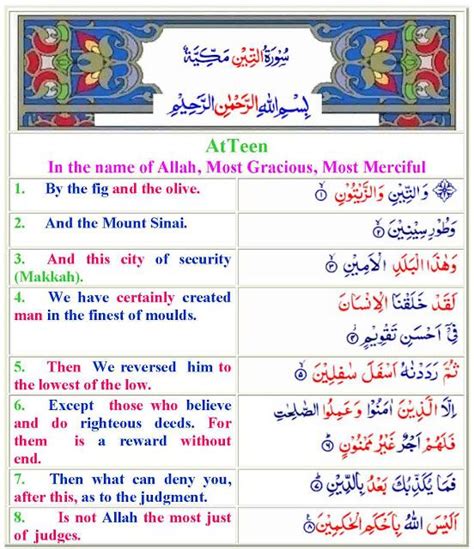 سُورَةُ التِّيْنِ مَكِّيَّةٌ
بِسْمِ اللهِ الرَّحْمٰنِ الرَّحِيْمِ
AtTeen
In the name of Allah, Most Gracious, Most Merciful
1. By the fig and the olive.
وَالتِّيْنِ وَالزَّيْتُوْنِ ۝١
2. And the Mount Sinai.
وَطُوْرِ سِيْنِيْنَ ۝٢
3. And this city of security
(Makkah).
وَهٰذَا الْبَلَدِ الْاَمِيْنِ ۝٣
4. We have certainly created
man in the finest of moulds.
لَقَدْ خَلَقْنَا الْاِنْسَانَ
فِيْٓ اَحْسَنِ تَقْوِيْمٍ ۝٤
5. Then We reversed him to
the lowest of the low.
ثُمَّ رَدَدْنٰهُ اَسْفَلَ سٰفِلِيْنَ ۝٥
6. Except those who believe
and do righteous deeds. For
them is a reward without
end.
اِلَّا الَّذِيْنَ اٰمَنُوْا وَعَمِلُوا الصّٰلِحٰتِ
فَلَهُمْ اَجْرٌ غَيْرُ مَمْنُوْنٍ ۝٦
7. Then what can deny you,
after this, as to the judgment.
فَمَا يُكَذِّبُكَ بَعْدُ بِالدِّيْنِ ۝٧
8. Is not Allah the most just
of judges.
اَلَيْسَ اللهُ بِاَحْكَمِ الْحٰكِمِيْنَ ۝٨